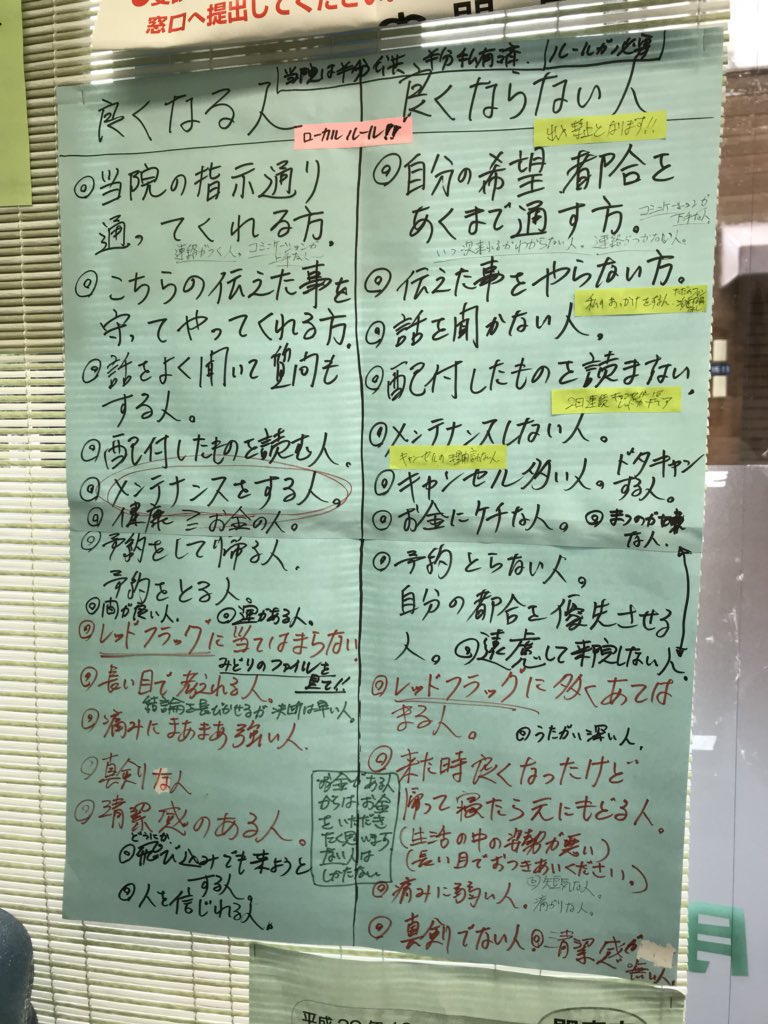 窓口へ提出してください
当院は半分公共、半分私有済.
ルールが必要
良くなる人
ローカルルール!!
◎当院の指示通り
通ってくれる方.
連絡がつく人。コミニケーションが
上手な人
◎こちらの伝えた事を
守ってやってくれる方.
◎話をよく聞いて質問も
する人。
◎配付したものを読む人.
◎メンテナンスをする人。
◎健康≧お金の人。
◎予約をして帰る人.
予約をとる人。
◎間が良い人.
◎運がある人.
◎レッドフラッグに当てはまらない
みどりのファイルを
見て!!
◎長い目で考えれる人.
結論を長びかせるが決断は早い人。
◎痛みにまあまあ強い人.
◎真剣な人
◎清潔感のある人。
どうにか
◎飛び込みでも来ようと
する人
◎人を信じれる人。
お金がある人
からはお金
をいただき
たく思います
ない人は
しかたない
良くならない人
出入禁止となります!!
◎自分の希望 都合を
あくまで通す方。
コミニケーションが
下手な人。
いつ来れるかわからない人.連絡がつかない人。
◎伝えた事をやらない方。
◎話を聞かない人。
◎配付したものを読まない.
2日連続
◎メンテナンスしない人。
キャンセルの
◎キャンセル多い人。ドタキャン
する人。
◎お金にケチな人。
◎まつのが嫌
な人.
◎予約とらない人。
自分の都合を優先させる
人。
◎遠慮して来院しない人.
◎レッドフラッグに多くあては
まる人。
◎うたがい深い人.
◎来た時良くなったけど
帰って寝たら元にもどる人。
(生活の中の姿勢が悪い)
(長い目でおつきあいください。)
◎痛みに弱い人.
◎短気な人。
痛がりな人。
◎真剣でない人.
◎清潔感が
無い人.